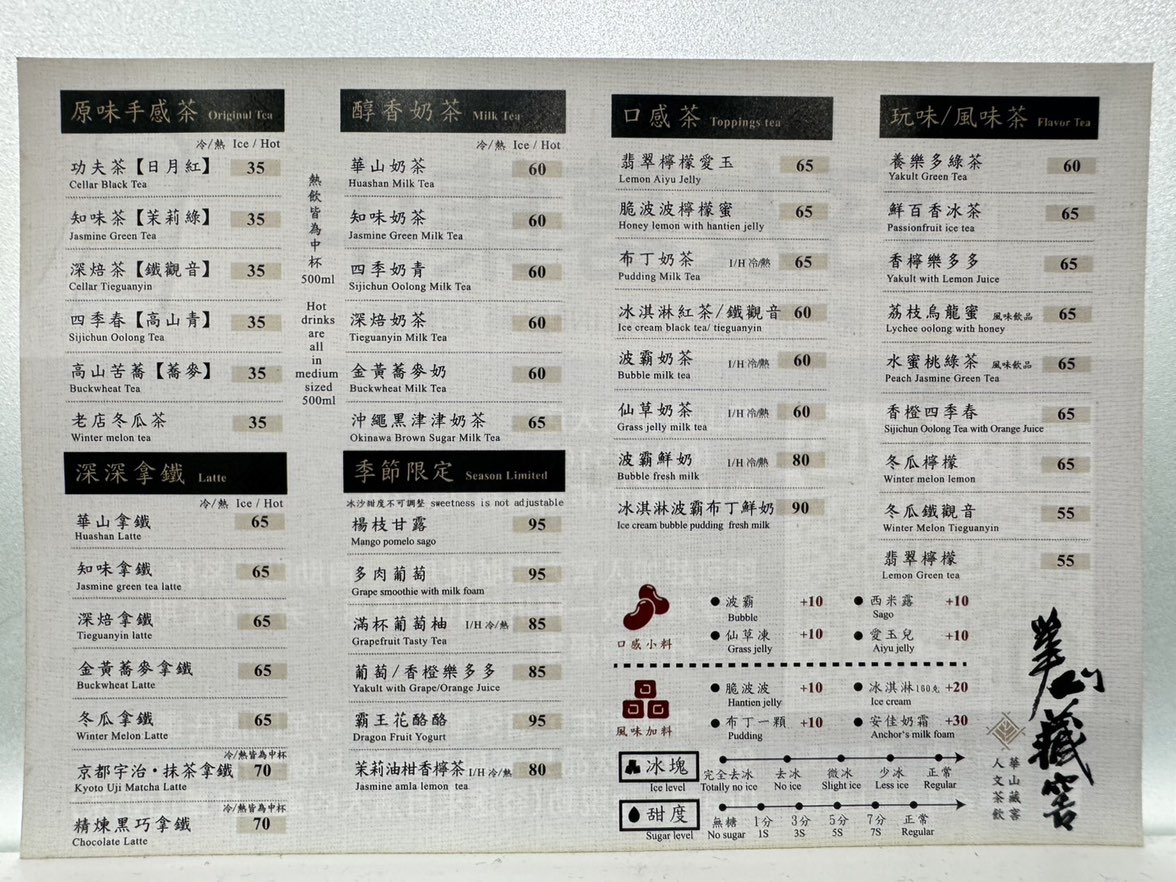 原味手感茶 Original Tea
冷/熱 Ice / Hot
功夫茶【日月紅】 35
Cellar Black Tea
知味茶【茉莉綠】 35
Jasmine Green Tea
深焙茶【鐵觀音】 35
Cellar Tieguanyin
四季春【高山青】 35
Sijichun Oolong Tea
高山苦蕎【蕎麥】 35
Buckwheat Tea
老店冬瓜茶 35
Winter melon tea
熱飲皆為中杯
500ml
Hot
drinks
are
all
in
medium
sized
500ml
深深拿鐵 Latte
冷/熱 Ice / Hot
華山拿鐵 65
Huashan Latte
知味拿鐵 65
Jasmine green tea latte
深焙拿鐵 65
Tieguanyin latte
金黃蕎麥拿鐵 65
Buckwheat Latte
冬瓜拿鐵 65
Winter Melon Latte
冷/熱皆為中杯
京都宇治・抹茶拿鐵 70
Kyoto Uji Matcha Latte
冷/熱皆為中杯
精煉黑巧拿鐵 70
Chocolate Latte
醇香奶茶 Milk Tea
冷/熱 Ice / Hot
華山奶茶 60
Huashan Milk Tea
知味奶茶 60
Jasmine Green Milk Tea
四季奶青 60
Sijichun Oolong Milk Tea
深焙奶茶 60
Tieguanyin Milk Tea
金黃蕎麥奶 60
Buckwheat Milk Tea
沖繩黑津津奶茶 65
Okinawa Brown Sugar Milk Tea
季節限定 Season Limited
冰沙甜度不可調整 sweetness is not adjustable
楊枝甘露 95
Mango pomelo sago
多肉葡萄 95
Grape smoothie with milk foam
滿杯葡萄柚 I/H 冷/熱 85
Grapefruit Tasty Tea
葡萄/香橙樂多多 85
Yakult with Grape/Orange Juice
霸王花酪酪 95
Dragon Fruit Yogurt
茉莉油柑香檸茶 I/H 冷/熱 80
Jasmine amla lemon tea
口感茶 Toppings tea
翡翠檸檬愛玉 65
Lemon Aiyu Jelly
脆波波檸檬蜜 65
Honey lemon with hantien jelly
布丁奶茶 I/H 冷/熱 65
Pudding Milk Tea
冰淇淋紅茶/鐵觀音 60
Ice cream black tea/ tieguanyin
波霸奶茶 I/H 冷/熱 60
Bubble milk tea
仙草奶茶 I/H 冷/熱 60
Grass jelly milk tea
波霸鮮奶 I/H 冷/熱 80
Bubble fresh milk
冰淇淋波霸布丁鮮奶 90
Ice cream bubble pudding fresh milk
玩味/風味茶 Flavor Tea
養樂多綠茶 60
Yakult Green Tea
鮮百香冰茶 65
Passionfruit ice tea
香檸樂多多 65
Yakult with Lemon Juice
荔枝烏龍蜜 風味飲品 65
Lychee oolong with honey
水蜜桃綠茶 風味飲品 65
Peach Jasmine Green Tea
香橙四季春 65
Sijichun Oolong Tea with Orange Juice
冬瓜檸檬 65
Winter melon lemon
冬瓜鐵觀音 55
Winter Melon Tieguanyin
翡翠檸檬 55
Lemon Green tea
口感小料
波霸 +10
Bubble
西米露 +10
Sago
仙草凍 +10
Grass jelly
愛玉兒 +10
Aiyu jelly
風味加料
脆波波 +10
Hantien jelly
冰淇淋160克 +20
Ice cream
布丁一顆 +10
Pudding
安佳奶霜 +30
Anchor's milk foam
冰塊
Ice level
完全去冰 去冰 微冰 少冰 正常
Totally no ice No ice Slight ice Less ice Regular
甜度
Sugar level
無糖 1分 3分 5分 7分 正常
No sugar 1S 3S 5S 7S Regular
華山藏窖
人文茶飲
華山藏窖